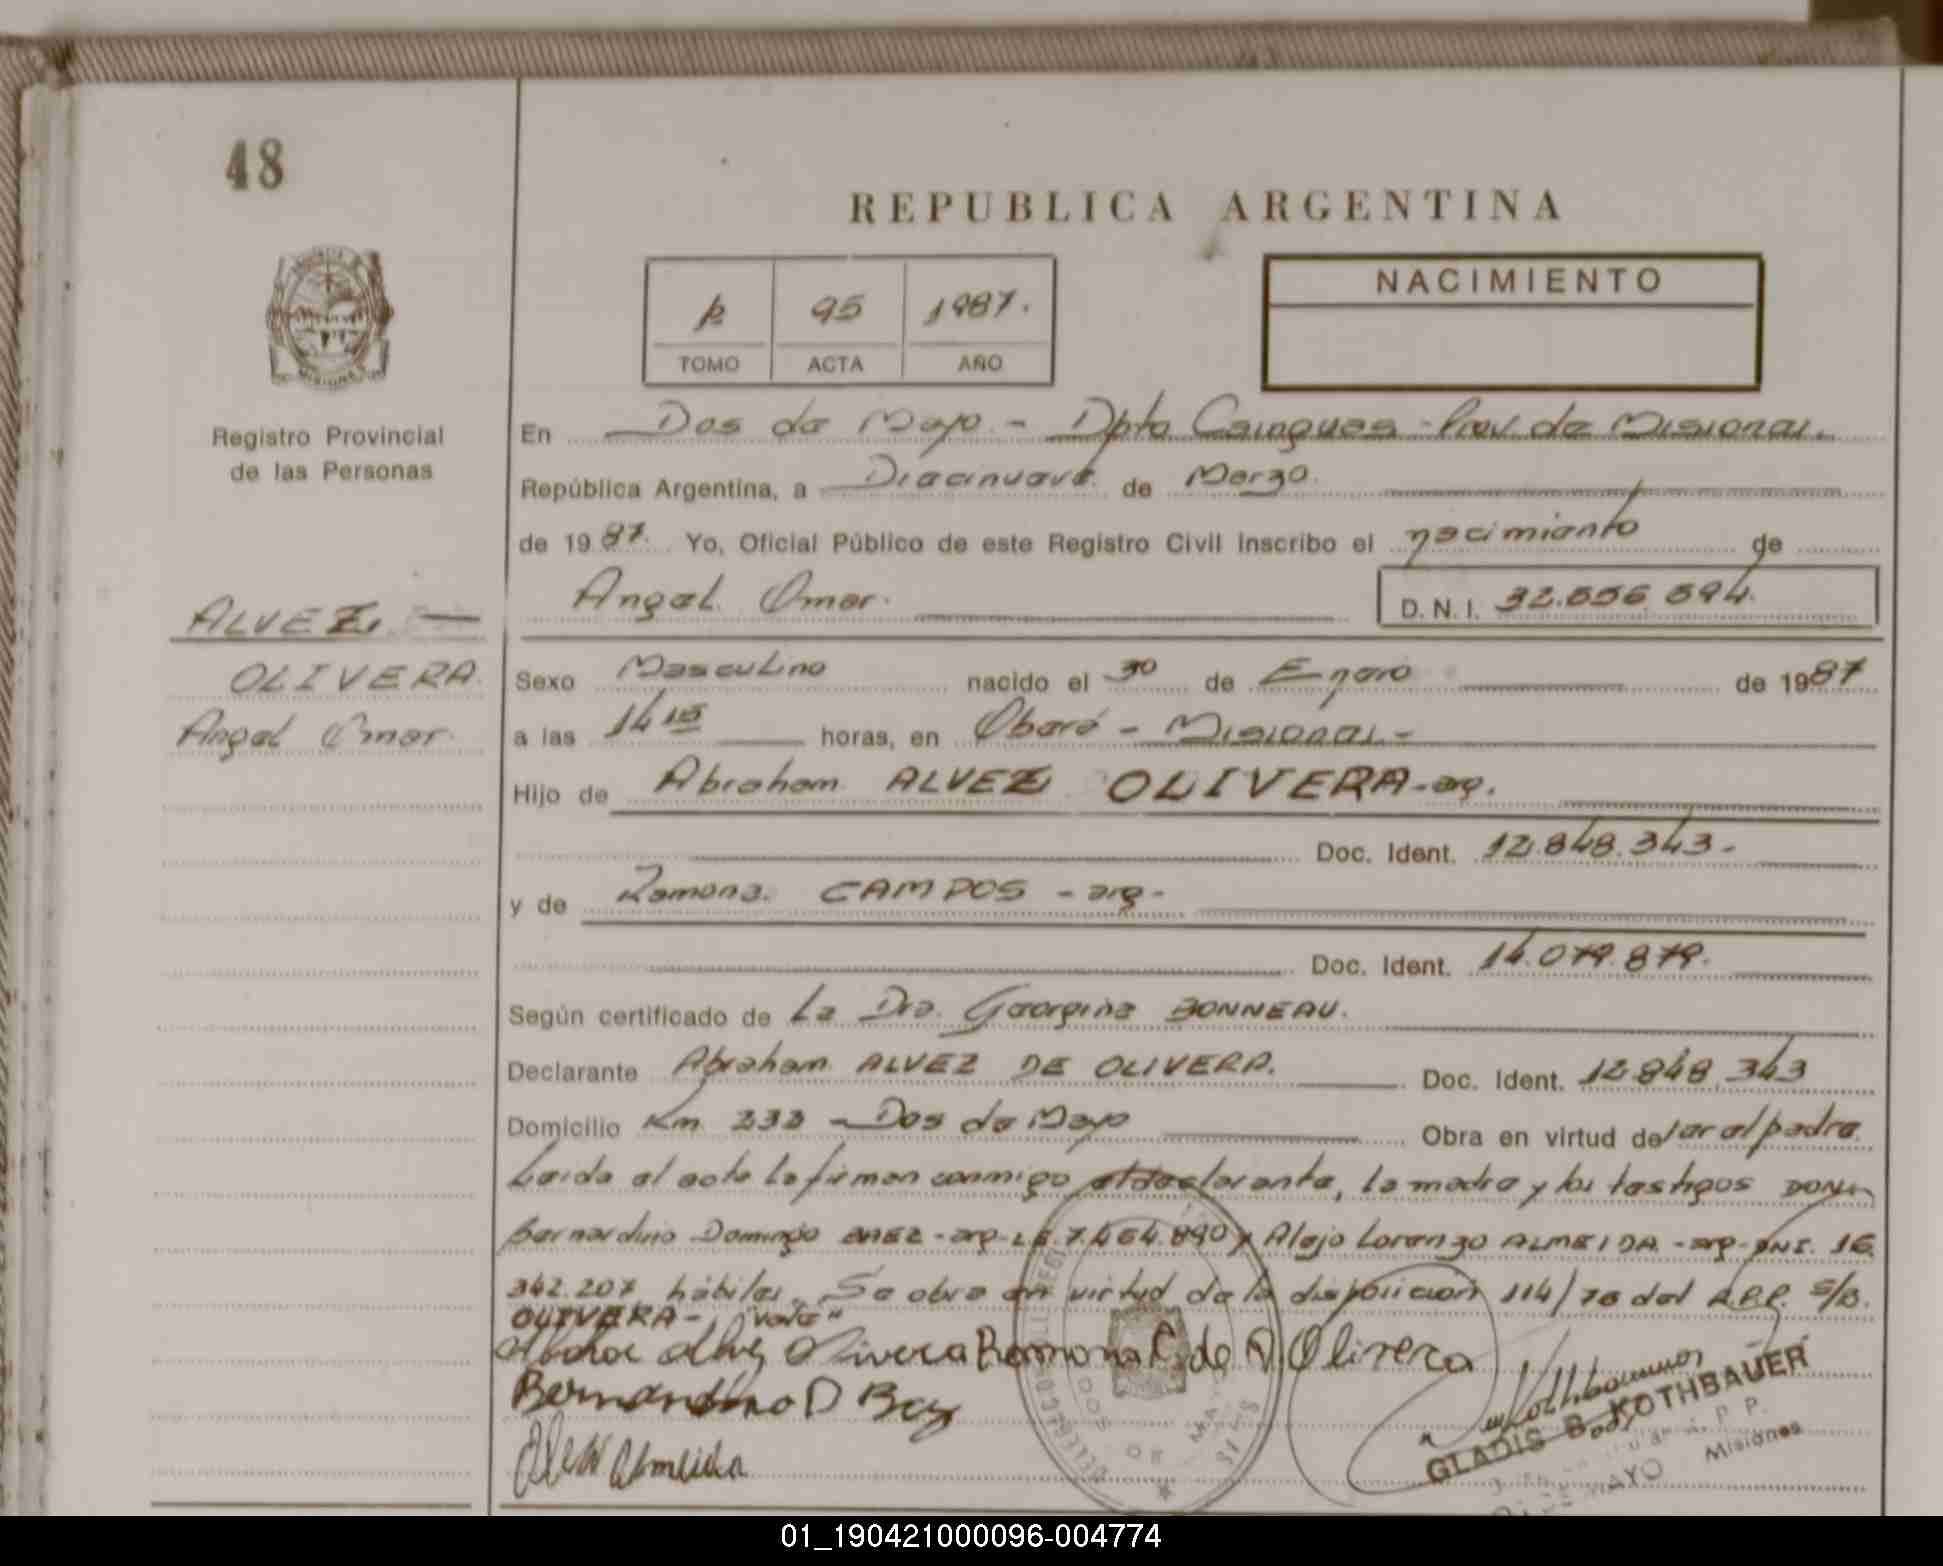 48
REPUBLICA ARGENTINA
95 1987.
TOMO ACTA AÑO
NACIMIENTO
Registro Provincial
de las Personas
En Dos de Mayo - Dpto Cainguas - Prov. de Misiones.
República Argentina, a Diecinueve de Marzo
de 1987. Yo, Oficial Público de este Registro Civil inscribo el nacimiento de
Angel Omar. D. N. I. 32.556.594.
ALVEZ
OLIVERA
Angel Omar.
Sexo Masculino nacido el 30 de Enero de 1987
a las 14 15 horas, en Oberá - Misiones -
Hijo de Abraham ALVEZ OLIVERA - arg.
Doc. Ident. 12.848.343 -
y de Ramona CAMPOS - arg -
Doc. Ident. 14.079.879.
Según certificado de La Dra. Georgina BONNEAU.
Declarante Abraham ALVEZ DE OLIVERA. Doc. Ident. 12.848.343
Domicilio Km 233 - Dos de Mayo Obra en virtud de ser el padre
Leida el acta la firman conmigo el declarante, la madre y los testigos DON
Bernardino Domingo BAEZ - arg - L.E. 7.464.890 y Alejo Lorenzo ALMEIDA - arg - DNI. 16
342.207 hábiles. Se obra en virtud de la disposicion 114/78 del R.P.P. S/B.
OLIVERA - "vale"
Alvez Olivera Ramona C. de A. Olivera
Bernardino D Baez
Almeida
GLADIS B. KOTHBAUER
Misiones
01_190421000096-004774